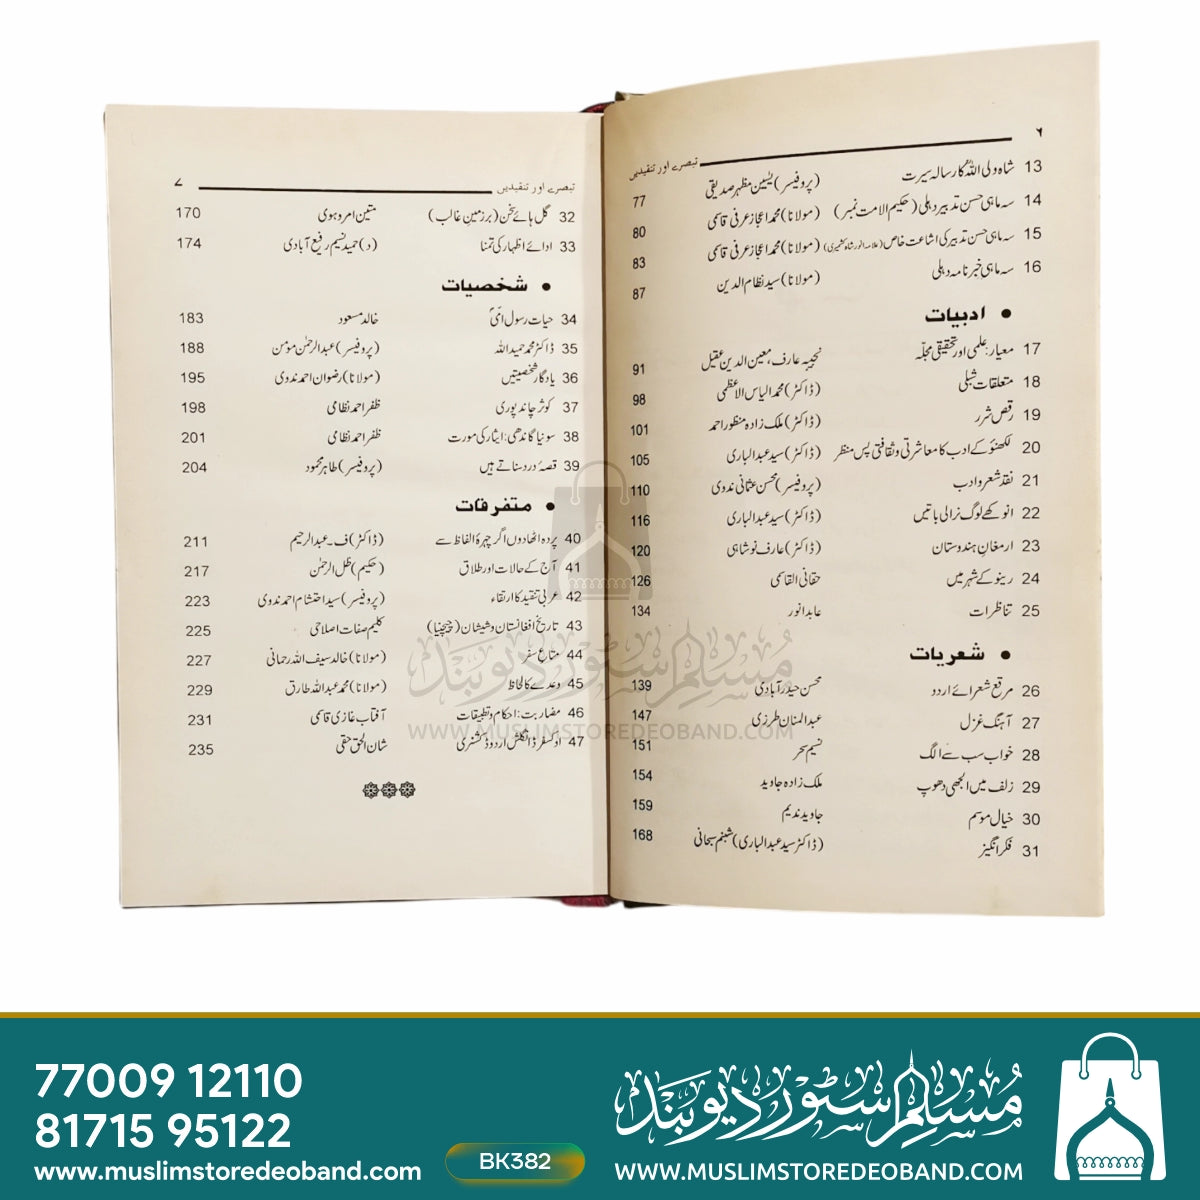 ۶
تبصرے اور تنقیدیں
13 شاہ ولی اللہؒ کا رسالہ سیرت (پروفیسر) یٰسین مظہر صدیقی 77
14 سہ ماہی حسن تدبیر دہلی (حکیم الامت نمبر) (مولانا) محمد اعجاز عرفی قاسمی 80
15 سہ ماہی حسن تدبیر کی اشاعت خاص (علامہ انور شاہ کشمیری) (مولانا) محمد اعجاز عرفی قاسمی 83
16 سہ ماہی خبرنامہ دہلی (مولانا) سید نظام الدین 87
● ادبیات
17 معیار: علمی اور تحقیقی مجلّہ نجیبہ عارف، معین الدین عقیل 91
18 متعلقات شبلی (ڈاکٹر) محمد الیاس الاعظمی 98
19 رقص شرر (ڈاکٹر) ملک زادہ منظور احمد 101
20 لکھنؤ کے ادب کا معاشرتی و ثقافتی پس منظر (ڈاکٹر) سید عبدالباری 105
21 نقد شعر و ادب (پروفیسر) محسن عثمانی ندوی 110
22 انوکھے لوگ نرالی باتیں (ڈاکٹر) سید عبدالباری 116
23 ارمغان ہندوستان (ڈاکٹر) عارف نوشاہی 120
24 رینو کے شہر میں حقانی القاسمی 126
25 تناظرات عابد انور 134
● شعریات
26 مرقع شعرائے اردو محسن حیدرآبادی 139
27 آہنگ غزل عبدالمنان طرزی 147
28 خواب سب سے الگ نسیم سحر 151
29 زلف میں الجھی دھوپ ملک زادہ جاوید 154
30 خیال موسم جاوید ندیم 159
31 فکر انگیز (ڈاکٹر سید عبدالباری) شبنم سبحانی 168
۷
تبصرے اور تنقیدیں
32 گل ہائے سخن (بر زمینِ غالب) متین امروہوی 170
33 ادائے اظہار کی تمنا (د) حمید نسیم رفیع آبادی 174
● شخصیات
34 حیات رسول امیؐ خالد مسعود 183
35 ڈاکٹر محمد حمید اللہ (پروفیسر) عبدالرحمٰن مومن 188
36 یادگار شخصیتیں (مولانا) رضوان احمد ندوی 195
37 کوثر چاند پوری ظفر احمد نظامی 198
38 سونیا گاندھی: ایثار کی مورت ظفر احمد نظامی 201
39 قصہ درد سناتے ہیں (پروفیسر) طاہر محمود 204
● متفرقات
40 پردہ اٹھا دوں اگر چہرۂ الفاظ سے (ڈاکٹر) ف۔ عبدالرحیم 211
41 آج کے حالات اور طلاق (حکیم) ظل الرحمٰن 217
42 عربی تنقید کا ارتقاء (پروفیسر) سید احتشام احمد ندوی 223
43 تاریخ افغانستان و شیشان (چیچنیا) کلیم صفات اصلاحی 225
44 متاع سفر (مولانا) خالد سیف اللہ رحمانی 227
45 وعدے کا لحاظ (مولانا) محمد عبداللہ طارق 229
46 مضاربت: احکام و تطبیقات آفتاب غازی قاسمی 231
47 اوکسفر ڈ انگلش اردو ڈکشنری شان الحق حقی 235
مسلم سٹور دیوبند
WWW.MUSLIMSTOREDEOBAND.COM
77009 12110
81715 95122
www.muslimstoredeoband.com
BK382
مسلم سٹور دیوبند
WWW.MUSLIMSTOREDEOBAND.COM